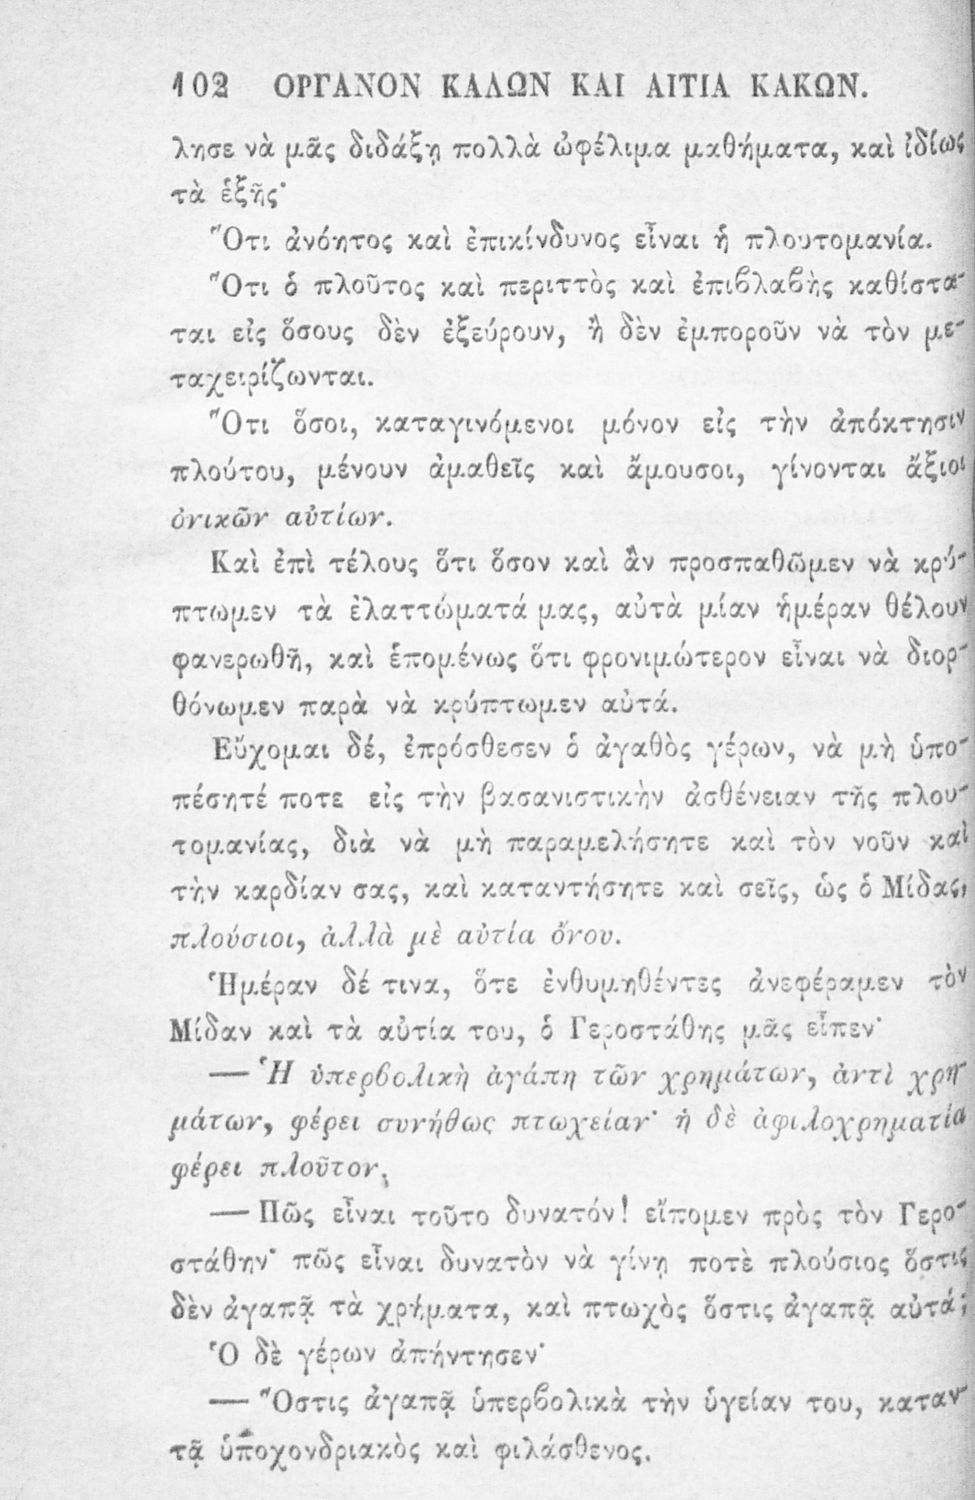 102 ΟΡΓΑΝΟΝ ΚΑΛΩΝ ΚΑΙ ΑΙΤΙΑ ΚΑΚΩΝ.
λησε νὰ μᾶς διδάξῃ πολλὰ ὠφέλιμα μαθήματα, καὶ ἰδίως
τὰ ἑξῆς·
Ὅτι ἀνόητος καὶ ἐπικίνδυνος εἶναι ἡ πλουτομανία.
Ὅτι ὁ πλοῦτος καὶ περιττὸς καὶ ἐπιϐλαϐὴς καθίστα-
ται εἰς ὅσους δὲν ἐξεύρουν, ἢ δὲν ἐμποροῦν νὰ τὸν με-
ταχειρίζωνται.
Ὅτι ὅσοι, καταγινόμενοι μόνον εἰς τὴν ἀπόκτησιν
πλούτου, μένουν ἀμαθεῖς καὶ ἄμουσοι, γίνονται ἄξιοι
ὀνικῶν αὐτίων.
Καὶ ἐπὶ τέλους ὅτι ὅσον καὶ ἂν προσπαθῶμεν νὰ κρύ-
πτωμεν τὰ ἐλαττώματά μας, αὐτὰ μίαν ἡμέραν θέλουν
φανερωθῆ, καὶ ἑπομένως ὅτι φρονιμώτερον εἶναι νὰ διορ-
θόνωμεν παρὰ νὰ κρύπτωμεν αὐτά.
Εὔχομαι δέ, ἐπρόσθεσεν ὁ ἀγαθὸς γέρων, νὰ μὴ ὑπο-
πέσητέ ποτε εἰς τὴν βασανιστικὴν ἀσθένειαν τῆς πλου-
τομανίας, διὰ νὰ μὴ παραμελήσητε καὶ τὸν νοῦν καὶ
τὴν καρδίαν σας, καὶ καταντήσητε καὶ σεῖς, ὡς ὁ Μίδας,
πλούσιοι, ἀλλὰ μὲ αὐτία ὄνου.
Ἡμέραν δέ τινα, ὅτε ἐνθυμηθέντες ἀνεφέραμεν τὸν
Μίδαν καὶ τὰ αὐτία του, ὁ Γεροστάθης μᾶς εἶπεν·
— Ἡ ὑπερϐολικὴ ἀγάπη τῶν χρημάτων, ἀντὶ χρη-
μάτων, φέρει συνήθως πτωχείαν· ἡ δὲ ἀφιλοχρηματία
φέρει πλοῦτον,
— Πῶς εἶναι τοῦτο δυνατόν! εἴπομεν πρὸς τὸν Γερο-
στάθην· πῶς εἶναι δυνατὸν νὰ γίνῃ ποτὲ πλούσιος ὅστις
δὲν ἀγαπᾷ τὰ χρήματα, καὶ πτωχὸς ὅστις ἀγαπᾷ αὐτά;
Ὁ δὲ γέρων ἀπήντησεν·
— Ὅστις ἀγαπᾷ ὑπερϐολικὰ τὴν ὑγείαν του, καταν-
τᾷ ὑποχονδριακὸς καὶ φιλάσθενος.